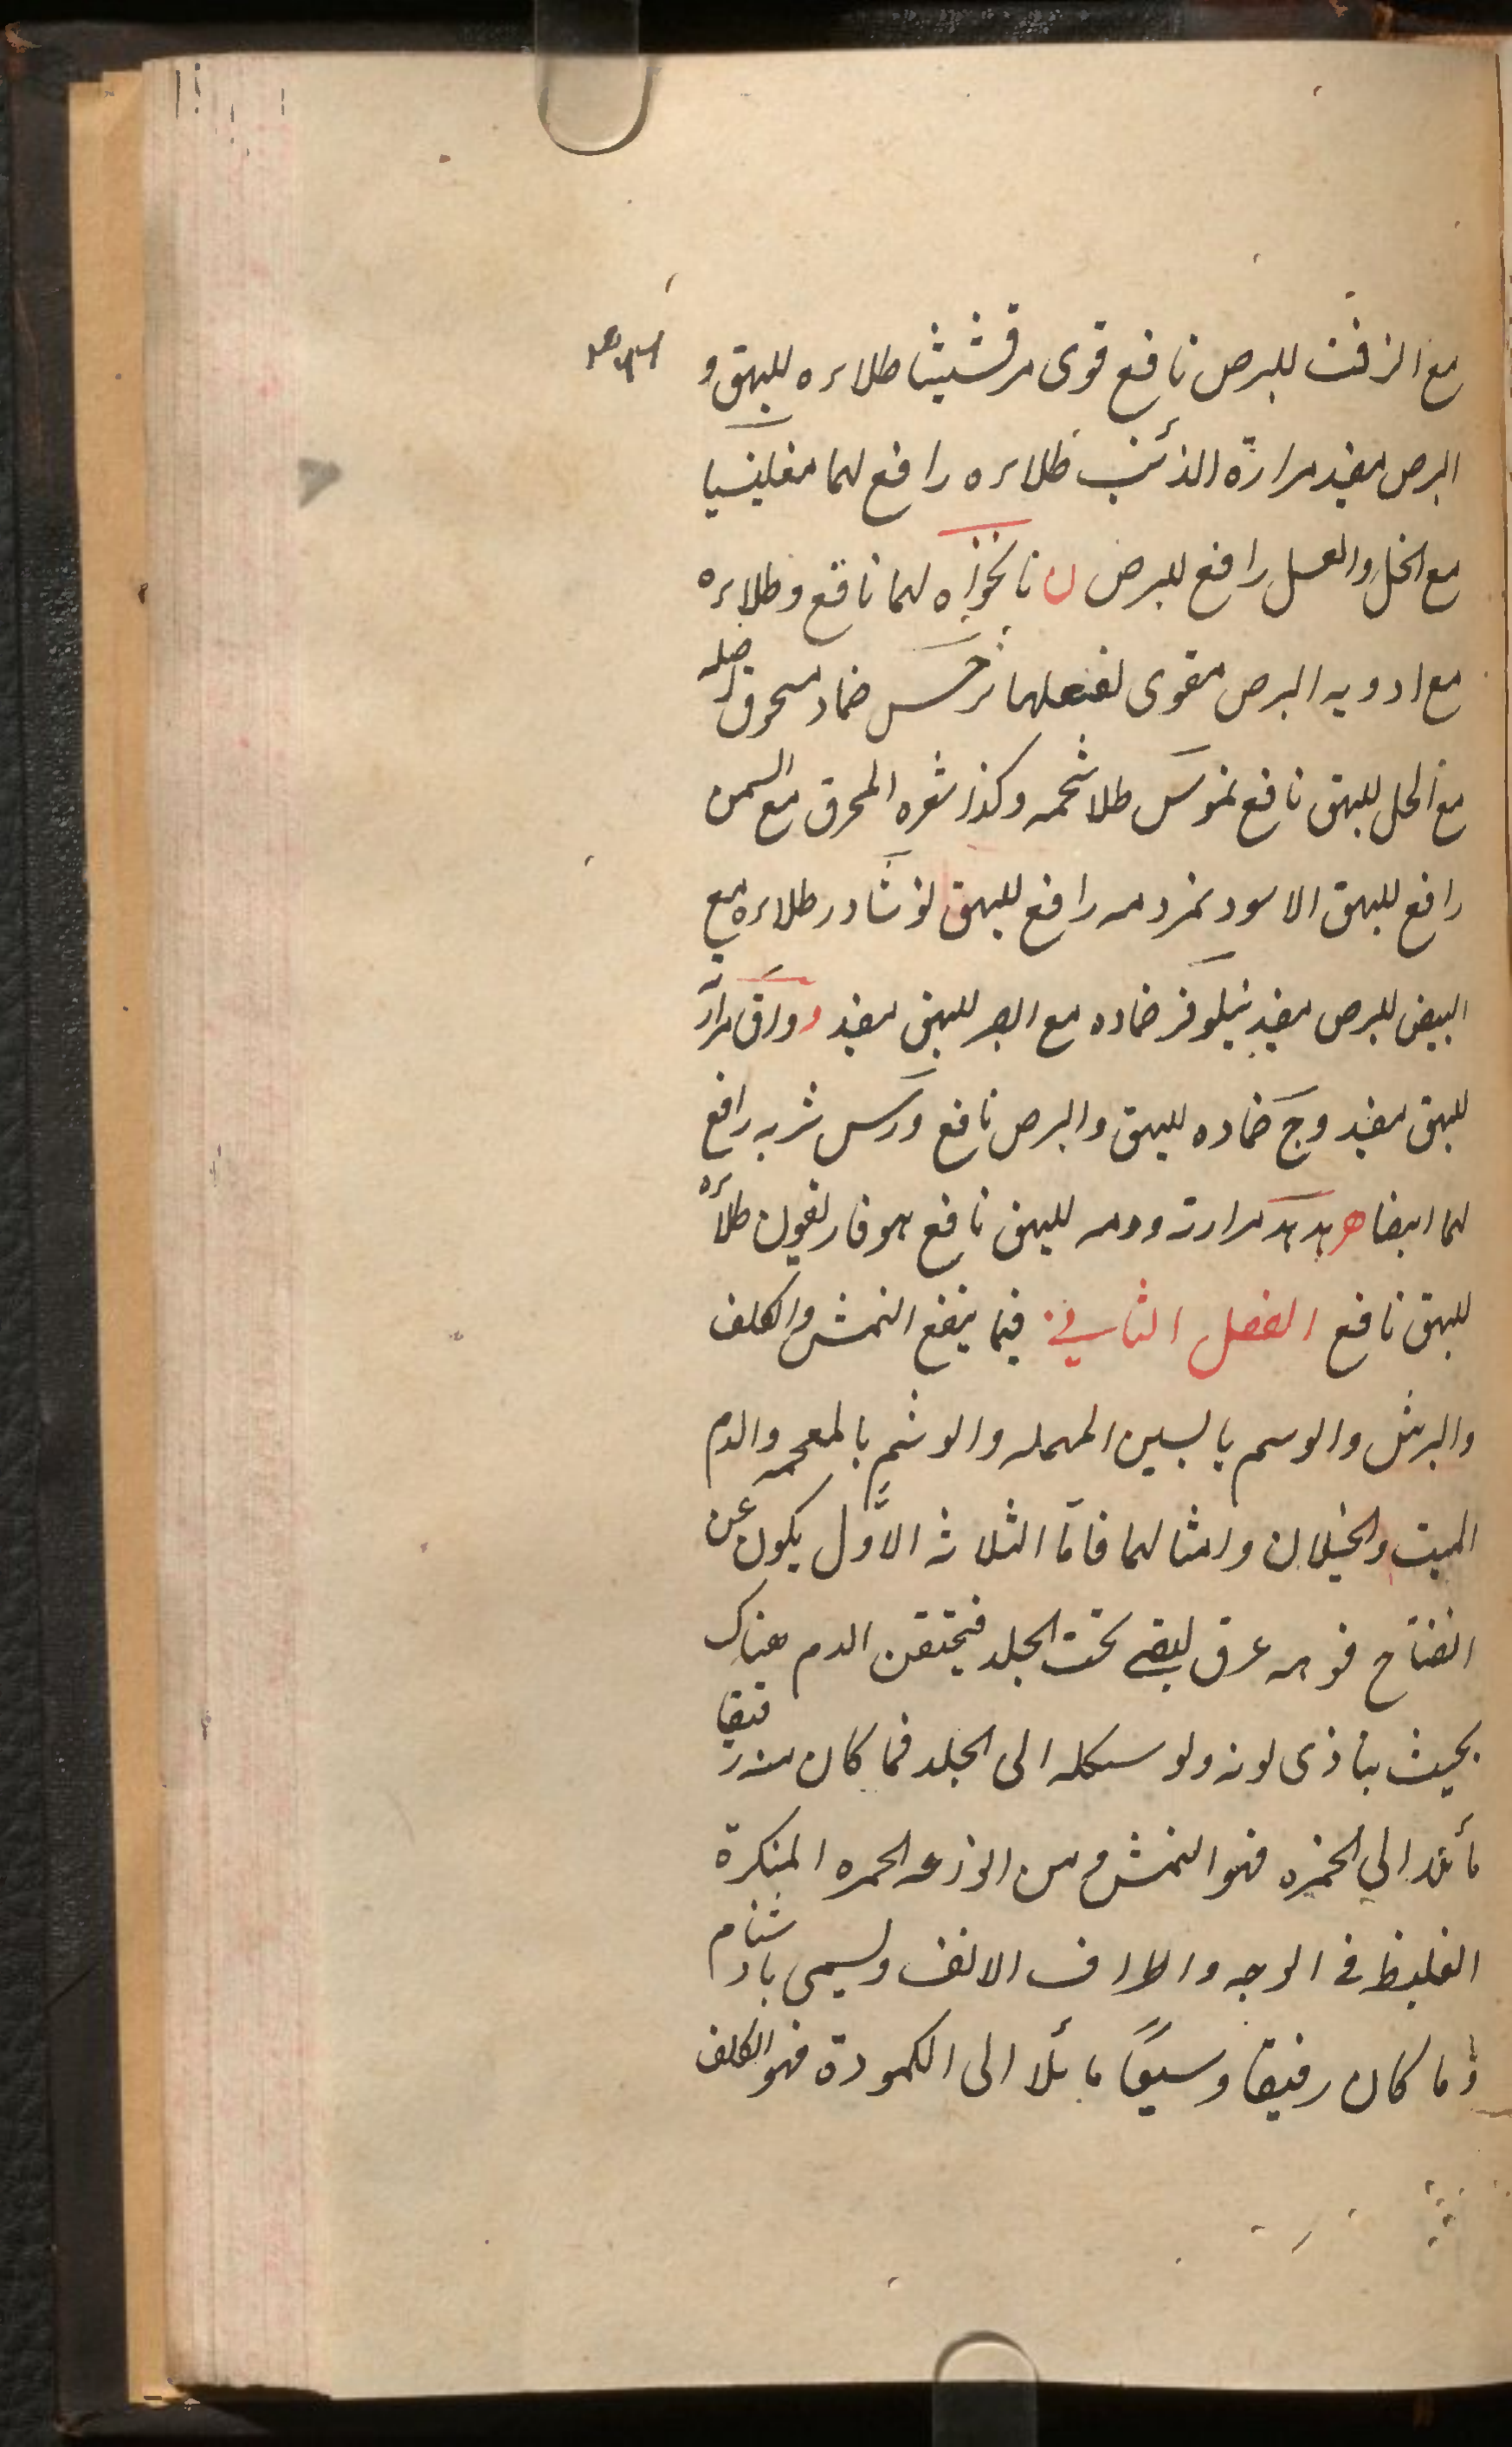 مع الزفت للبرص نافع قوى مرقشيثا طلاءه للبهق و
البرص مفيد مرارة الذئب طلاءه رافع لهما مغنيسيا
مع الخل والعسل رافع للبرص ن نانخواه لهما نافع وطلاءه
مع ادويه البرص مقوى لفعلها نرجس ضماد مسحوق اصله
مع الخل للبهق نافع نموس طلا شحمه وكذا شعره المحرق مع السمن
رافع للبهق الاسود نمر دمه رافع للبهق نوشادر طلاءه مع
البيض للبرص مفيد نيلوفر ضماده مع للبهق مفيد و ورق
للبهق مفيد وج ضماده للبهق والبرص نافع ورس شربه رافع
لهما ايضا هدهد مرارته ودمه للبهق نافع هوفاريقون طلاءه
للبهق نافع الفصل الثاني فيما ينفع النمش والكلف
والبرش والوسم بالسين المهمله والوشم بالمعجمه والدم
الميت والخيلان وامثالهما فاما الثلاثه الاول يكون عن
انفتاح فوهه عرق ليفى تحت الجلد فيحتقن الدم هناك
بحيث يتاذى لونه ولو شكله الى الجلد فما كان منه رقيقا
مائلا الى الحمره فهو النمش و من انواعه الحمره المنكرة
الغليظ فى الوجه واطراف الانف ويسمى بادشنام
وما كان رقيقا وسيعا مائلا الى الكمودة فهو الكلف